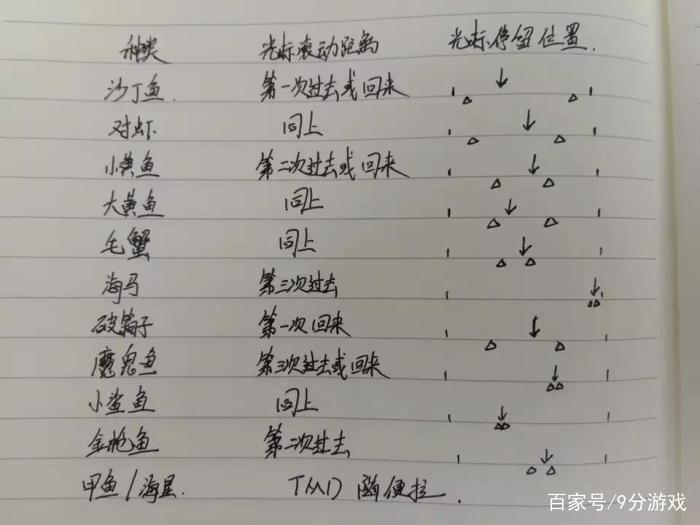 种类 光标滚动距离 光标停留位置.
沙丁鱼. 第一次过去或回来
对虾 同上
小黄鱼 第二次过去或回来
大黄鱼 同上
毛蟹 同上
海马 第三次过去
破鞋子 第一次回来
魔鬼鱼 第三次过去或回来
小鲨鱼 同上
金枪鱼 第二次过去
甲鱼/海星. TMD 随便拉.
百家号/9分游戏